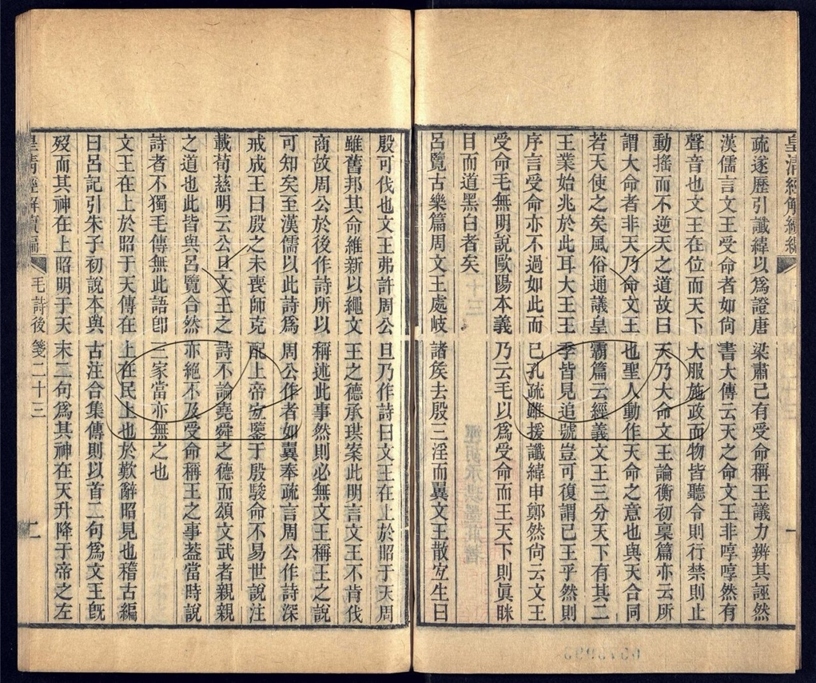 皇清經解續編
疏遂歷引讖緯以爲證唐梁肅已有受命稱王議力辨其誣然
漢儒言文王受命者如尙書大傳云天之命文王非啍啍然有
聲音也文王在位而天下大服施政而物皆聽令則行禁則止
動搖而不逆天之道故曰天乃大命文王論衡初稟篇亦云所
謂大命者非天乃命文王也聖人動作天命之意也與天合同
若天使之矣風俗通議皇霸篇云經義文王三分天下有其二
王業始兆於此耳大王王季皆見追號豈可復謂已王乎然則
序言受命亦不過如此而已孔疏雖援讖緯申鄭然尙云文王
受命毛無明說歐陽本義乃云毛以爲受命而王天下則眞眯
目而道黑白者矣
呂覽古樂篇周文王處岐諸矦去殷三淫而翼文王散宐生曰
殷可伐也文王弗許周公旦乃作詩曰文王在上於昭于天周
雖舊邦其命維新以繩文王之德承珙案此明言文王不肯伐
商故周公於後作詩所以稱述此事然則必無文王稱王之說
可知矣至漢儒以此詩爲周公作者如翼奉疏言周公作詩深
戒成王曰殷之未喪師克配上帝宐鑒于殷駿命不易世說注
載荀慈明云公旦文王之詩不論堯舜之德而頌文武者親親
之道也此皆與呂覽合然亦絕不及受命稱王之事葢當時說
詩者不獨毛傳無此語卽三家當亦無之也
文王在上於昭于天傳在上在民上也於歎辭昭見也稽古編
曰呂記引朱子初說本與古注合集傳則以首二句爲文王旣
歿而其神在上昭明于天末二句爲其神在天升降于帝之左
皇清經解續編
毛詩後箋二十三